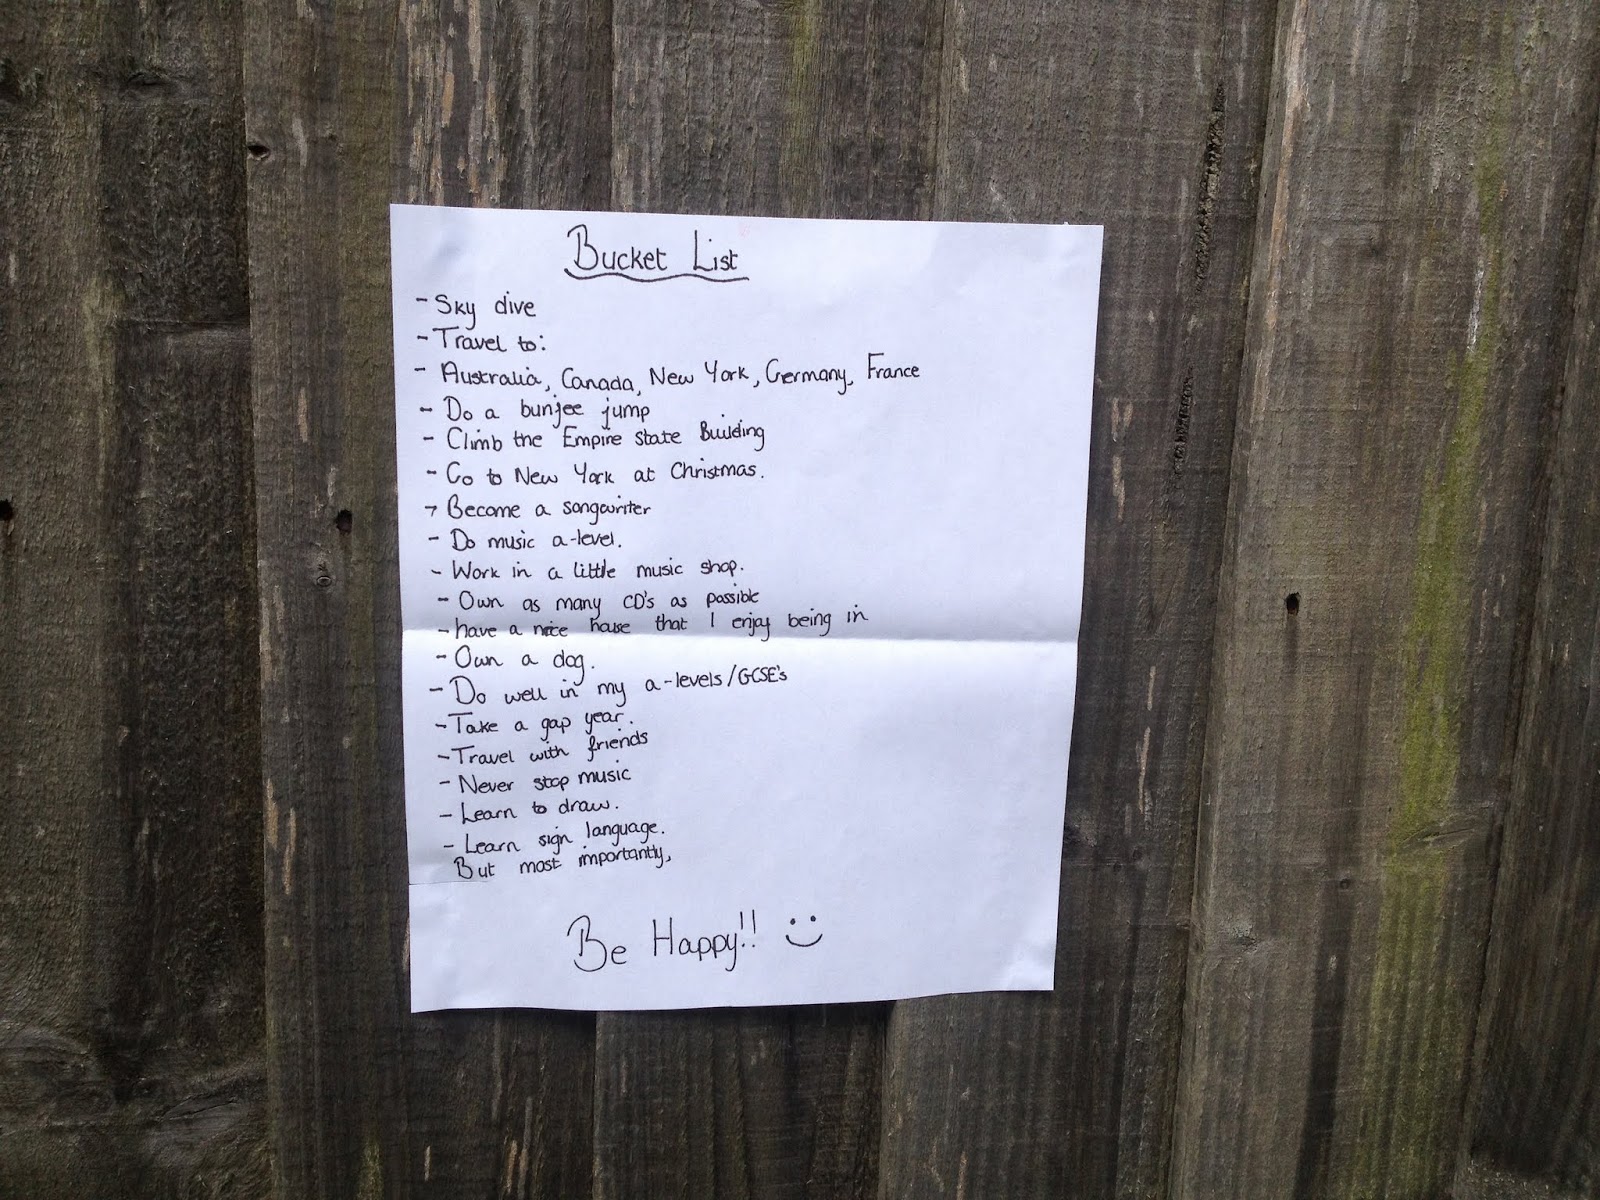 Bucket List
- Sky dive
- Travel to:
- Australia, Canada, New York, Germany, France
- Do a bunjee jump
- Climb the Empire State Building
- Go to New York at Christmas.
- Become a songwriter
- Do music a-level.
- Work in a little music shop.
- Own as many CD's as possible
- have a nice house that I enjoy being in
- Own a dog.
- Do well in my a-levels/GCSE's
- Take a gap year.
- Travel with friends
- Never stop music
- Learn to draw.
- Learn sign language.
But most importantly,
Be Happy!! :)